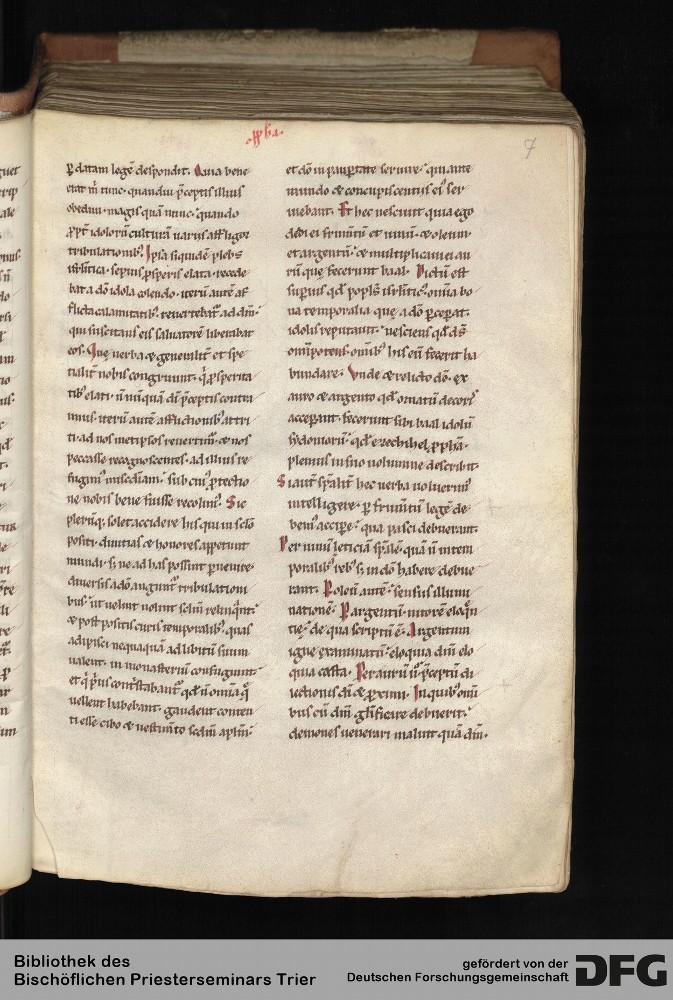 7
p datam legē despondit. Quia bene
erat m̄ tunc. quandiu p̄ceptis illius
obediui. magis quā nunc. quando
ꝓpt̄ idolorū culturā uariis affligor
tribulationibꝰ. Ipsa siquidē plebs
isrl̓itica. sepius ꝓsperis elata. recede
bat a dō idola colendo. iterū autē af
flicta calamitatibꝰ. reuertebat̄ ad dm̄.
qui suscitans eis saluatorē liberabat
eos. Que uerba & generalit̄ et spe
tialit̄ nobis congruunt. q̄ ꝓsperita
tibꝰ elati. n̄ nūquā dī p̄ceptis contra
imus. iterū autē afflictionibꝰ attri
ti. ad nos metipsos reuertimꝰ. & nos
peccasse recognoscentes. ad illius re
fugimꝰ misc̄diam. sub cuiꝰ ꝓtectio
ne nobis bene fuisse recolimꝰ. Sic
plerūq; solet accidere his qui in sclō
positi. diuitias & honores appetunt
mundi. s; ne ad has possint puenire.
diuersis a dō angunt̄ tribulationi
bus. ut uelint nolint sclm̄ relinq̄nt.
& postpositis curis temporalibꝰ. quas
adipisci nequaquā ad libitū suum
ualent. in monasteriū confugiunt.
et q̄ p̓us cont̓stabant̄ qd̄ n̄ omīa q̄
uellent habebant. gaudent conten
ti esse cibo & uestim̄to scdm̄ aplm̄.
et dō in paupertate seruire. qui ante
mundo & concupiscentiis eiꝰ ser
uiebant. Et hec nesciuit quia ego
dedi ei frumtū et uinū. & oleum.
et argentū. & multiplicaui ei au
rū que fecerunt baal. Dictū est
supius qd̄ popls̄ isrl̓itic̓. omīa bo
na temporalia que a dō ꝑceperat.
idolis reputauit. nesciens qd̄ ds̄
omīpotens. omībꝰ his eū fecerit ha
bundare. Vnde & relicto dō. ex
auro & argento qd̄ ornatū decoris
acceperant. fecerunt sibi baal idolū
sydoniorū. qd̄ ezechihel ꝓpha.
plenius in suo uolumine describit.
Si autē spālit̄ hec uerba uoluerimꝰ
intelligere. p frumtū legē de
bemꝰ accipe. qua pasci debuerant.
Per uinū leticiā spālē. quā n̄ in tem
poralibꝰ rebꝰ s; in dō habere debue
rant. P oleū autē. sensus illumi
nationē. P argentū. nitorē eloq̄n
tie. de qua scriptū ē. Argentum
igne examinatū. eloquia dn̄i elo
quia casta. Per aurū ū p̄ceptū di
lectionis dī & proximi. In quibꝰ omī
bus cū dm̄ glificare debuerit.
demones uenerari maluit quā dm̄.
Bibliothek des
Bischöflichen Priesterseminars Trier
gefördert von der
Deutschen Forschungsgemeinschaft
DFG